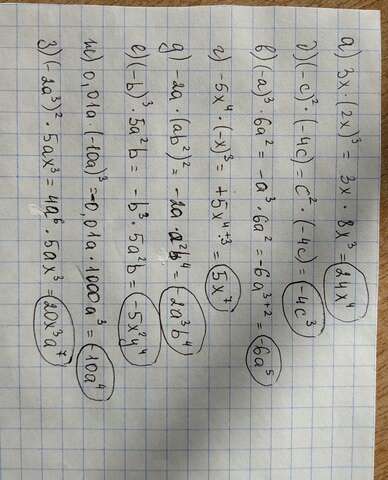 а) 3x·(2x)³ = 3x · 8x³ = 24x⁴
б) (-c)²·(-4c) = c²·(-4c) = -4c³
в) (-a)³·6a² = -a³·6a² = -6a³⁺² = -6a⁵
г) -5x⁴·(-x)³ = +5x⁴⁺³ = 5x⁷
д) -2a·(ab²)² = -2a·a²b⁴ = -2a³b⁴
е) (-b)³·5a²b = -b³·5a²b = -5x²y⁴
ж) 0,01a·(-10a)³ = -0,01a·1000a³ = -10a⁴
з) (-2a³)²·5ax³ = 4a⁶·5ax³ = 20x³a⁷